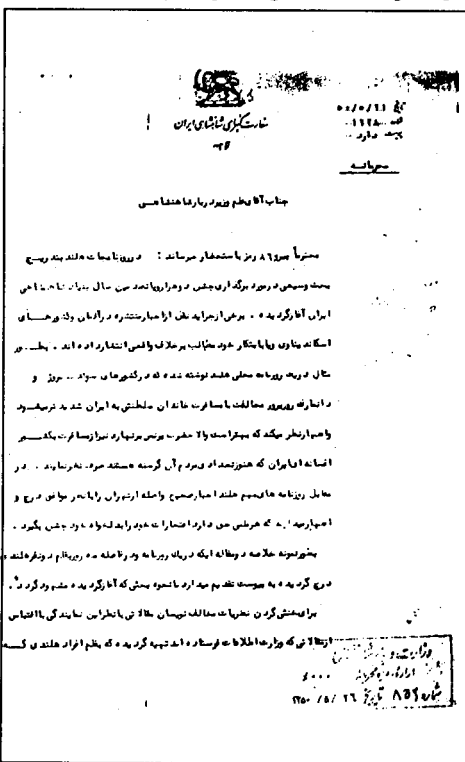 سفارت کبرای شاهنشاهی ایران
لاهه
تاریخ ۵۰/۵/۲۱
پیوست دارد
محرمانه
جناب آقای علم وزیر دربار شاهنشاهی
محترماً پیرو ۸۶ رمز باستحضار میرساند : در روزنامجات هلند بتدریج
بحث وسیعی در مورد برگذاری جشن دو هزار و پانصدمین سال بنیاد شاهنشاهی
ایران آغاز گردیده . برخی از جراید نقل از اخبار منتشره در آلمان و کشورهای
اسکاندیناوی و یا بابتکار خود مطالب بر خلاف واقعی انتشار داده اند . بطور
مثال در یک روزنامه محلی هلند نوشته شده که در کشورهای سوئد نروژ و
دانمارک روز بروز مخالفت با مسافرت خاندان سلطنتی به ایران شدیدتر میشود
و اظهار نظر میکند که بهتر است والا حضرت پرنس برنهارد نیز از مسافرت به کشور
افسانه ای ایران که هنوز تعدادی مردم آن گرسنه هستند صرف نظر نمایند . در
مقابل روزنامه های مهم هلند اخبار صحیح واصله از تهران را بطور موافق درج و
که هر ملتی حق دارد افتخارات خود را بدلخواه خود جشن بگیرد .
بطور نمونه خلاصه دو مقاله ایکه در یک روزنامه و در فاصله ده روز بقلم دو نفر هلندی
درج گردیده به پیوست تقدیم میدارد تا نحوه بحثی که آغاز گردیده مشهود گردد .
برای خنثی کردن نظریات مخالف نویسان مقالاتی با نظر این نمایندگی با اقتباس
از مقالاتی که وزارت اطلاعات فرستاده اند تهیه گردیده که بقلم افراد هلندی که
وزارت دربار شاهنشاهی
شماره ۸۵۶ تاریخ ۲۶ /۵/ ۱۳۵۰